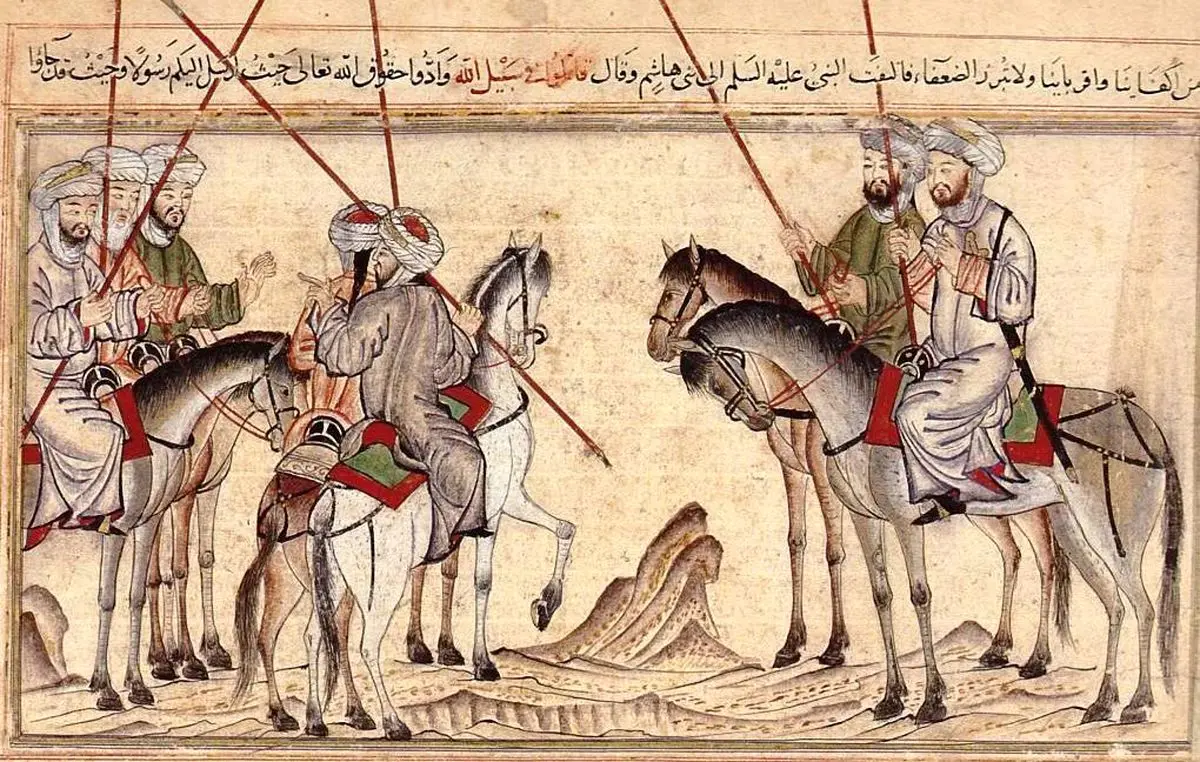 من اكفاينا واقرباينا ولا تبرز الضعفاء، فالتفت النبي عليه السلم الى بنى هاشم وقال قاتلوا فى سبيل الله وادّوا حقوق الله تعالى حيث ارسل اليكم رسولًا وحيث قد جاؤا